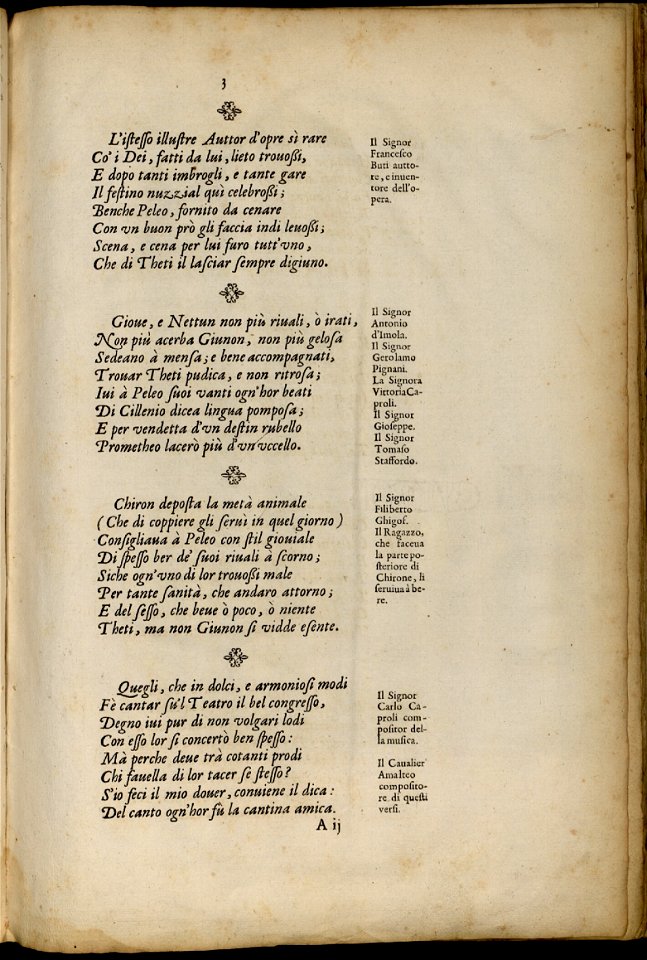 3
L'iſteſſo illuſtre Auttor d'opre sì rare
Co' i Dei, fatti da lui, lieto trouoßi,
E dopo tanti imbrogli, e tante gare
Il feſtino nuzzial quì celebroßi;
Benche Peleo, fornito da cenare
Con vn buon prò gli faccia indi leuoßi;
Scena, e cena per lui furo tutt'vno,
Che di Theti il laſciar ſempre digiuno.
Il Signor
Franceſco
Buti autto-
re, e inuen-
tore dell'o-
pera.
Gioue, e Nettun non più riuali, ò irati,
Non più acerba Giunon, non più geloſa
Sedeano à menſa; e bene accompagnati,
Trouar Theti pudica, e non ritroſa;
Iui à Peleo ſuoi vanti ogn'hor beati
Di Cillenio dicea lingua pompoſa;
E per vendetta d'vn deſtin rubello
Prometheo lacerò più d'vn vccello.
Il Signor
Antonio
d'Imola.
Il Signor
Gerolamo
Pignani.
La Signora
Vittoria Ca-
proli.
Il Signor
Gioſeppe.
Il Signor
Tomaſo
Staffordo.
Chiron depoſta la metà animale
(Che di coppiere gli ſeruì in quel giorno)
Conſigliaua à Peleo con ſtil giouiale
Di ſpeſſo ber de' ſuoi riuali à ſcorno;
Siche ogn'vno di lor trouoßi male
Per tante ſanità, che andaro attorno;
E del ſeſſo, che beue ò poco, ò niente
Theti, ma non Giunon ſi vidde eſente.
Il Signor
Filiberto
Ghigof.
Il Ragazzo,
che faceua
la parte po-
ſteriore di
Chirone, li
ſeruiua à be-
re.
Quegli, che in dolci, e armonioſi modi
Fè cantar ſu'l Teatro il bel congreſſo,
Degno iui pur di non volgari lodi
Con eſſo lor ſi concertò ben ſpeſſo:
Mà perche deue trà cotanti prodi
Chi fauella di lor tacer ſe ſteſſo?
S'io feci il mio douer, conuiene il dica:
Del canto ogn'hor fù la cantina amica.
Il Signor
Carlo Ca-
proli com-
poſitor del-
la muſica.
Il Caualier
Amalteo
compoſito-
re di queſti
verſi.
A ij